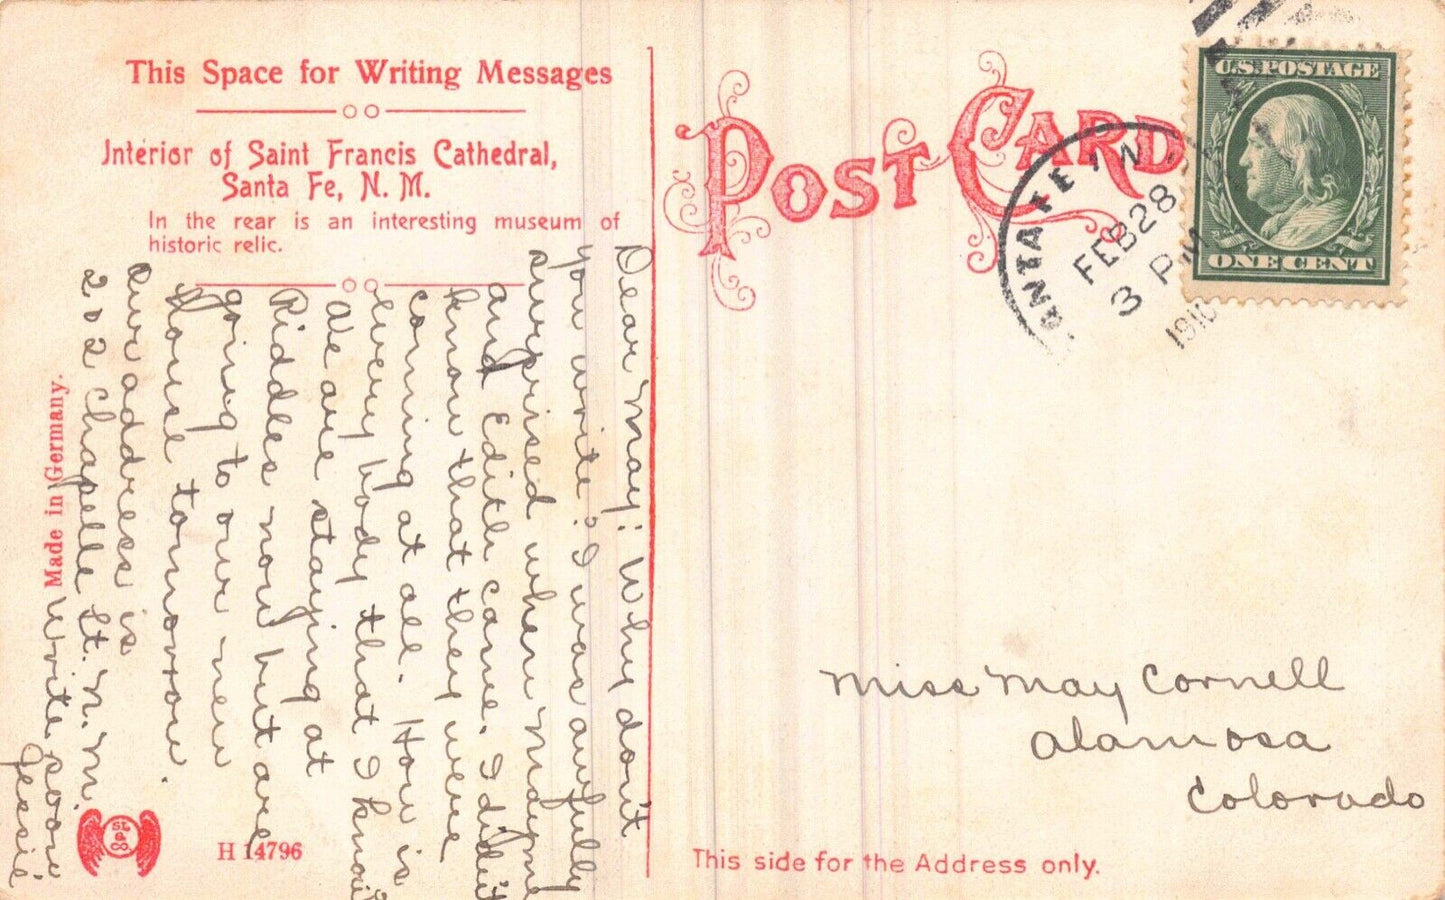 This Space for Writing Messages
Interior of Saint Francis Cathedral,
Santa Fe, N. M.
In the rear is an interesting museum of
historic relic.
Dear May: Why don't
you write? I was awfully
surprised when Mayme
and Edith came. I didn't
know that they were
coming at all. How is
every body that I know?
We are staying at
Riddles now but are
going to our new
house tomorrow.
Our address is
202 Chapelle St. N. M.
Write soon
Jessie
Made in Germany.
SL
&
Co.
H 14796
POST CARD
SANTA FE N.
FEB 28
3 PM
1910
U.S. POSTAGE
ONE CENT
Miss May Cornell
Alamosa
Colorado
This side for the Address only.